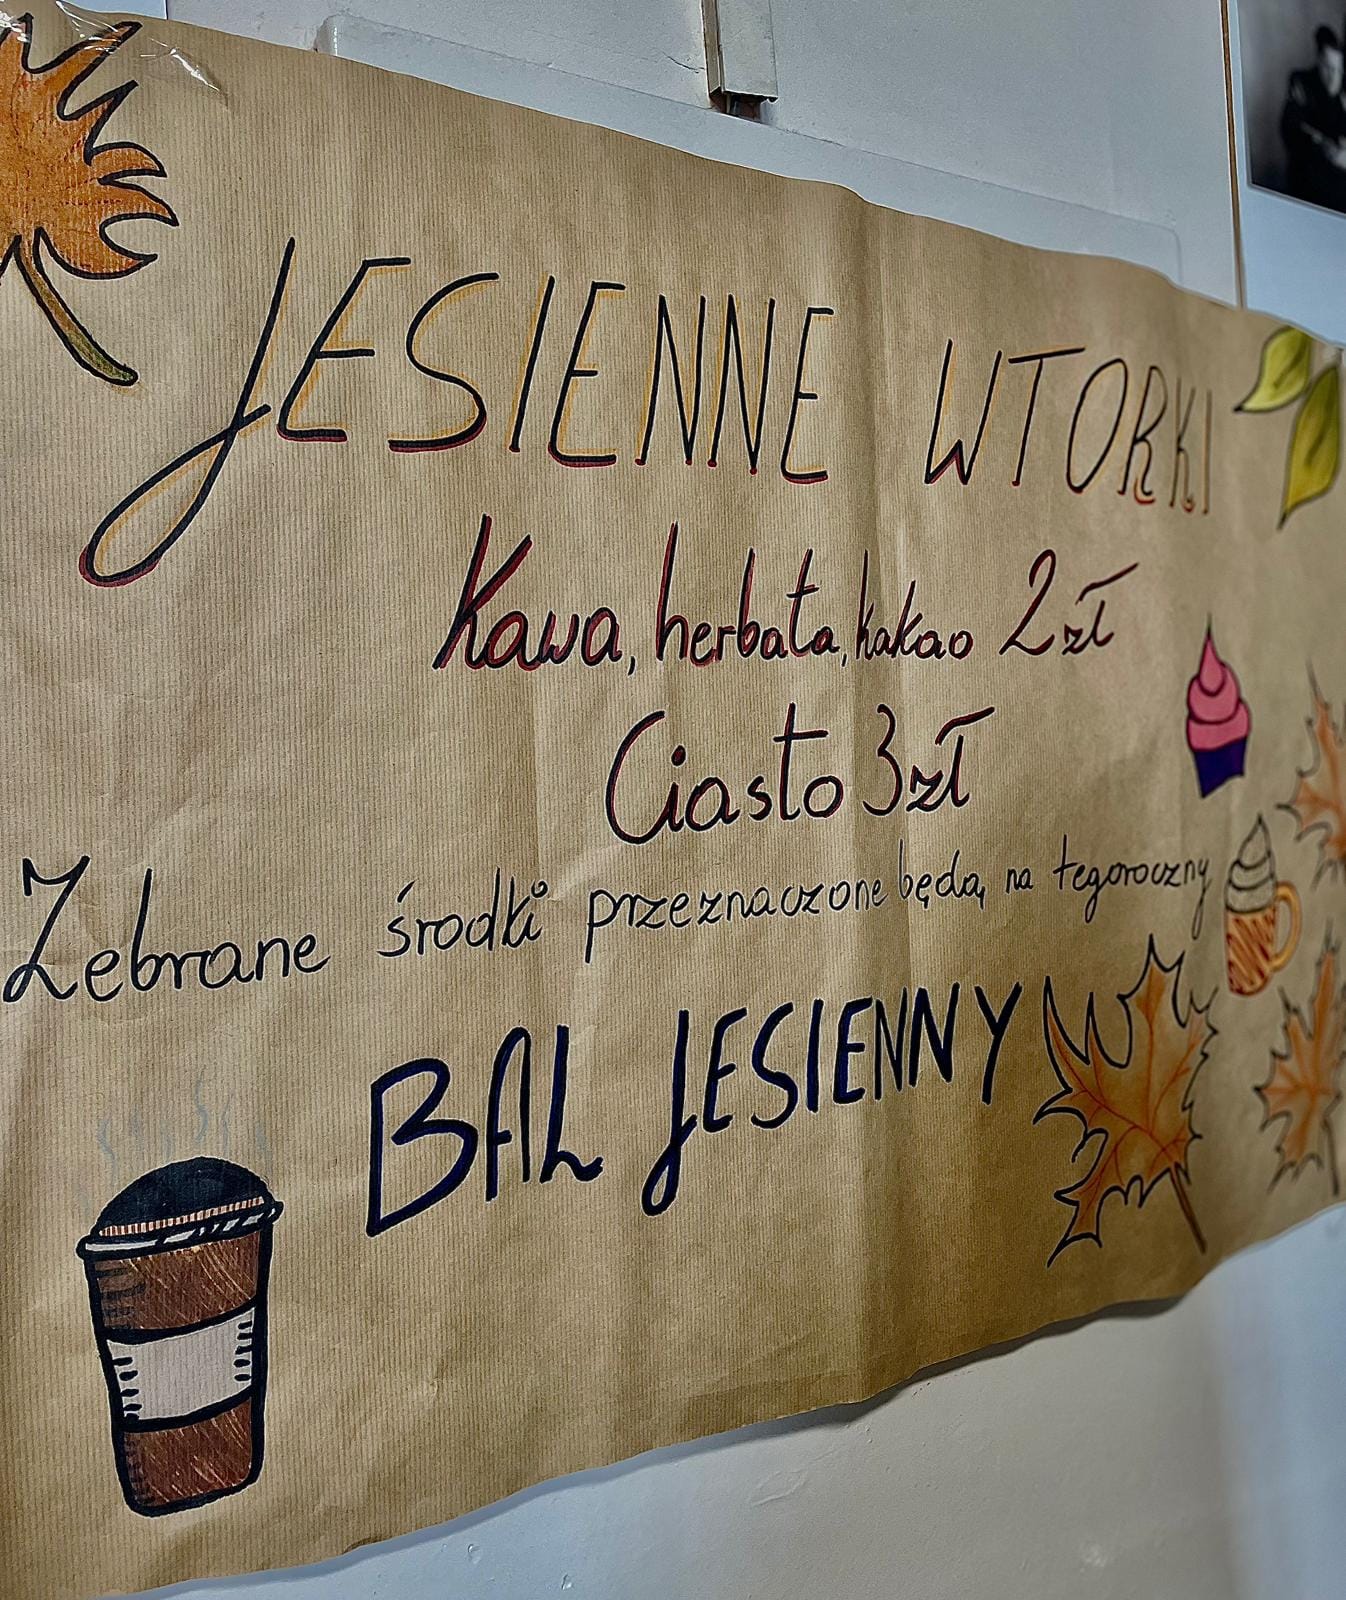 JESIENNE WTORKI
Kawa, herbata, kakao 2zł
Ciasto 3zł
Zebrane środki przeznaczone będą na tegoroczny
BAL JESIENNY